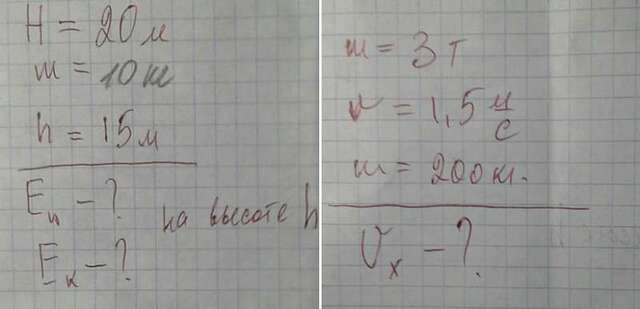 H = 20 м
m = 10 кг
h = 15 м
Eп - ?
на высоте h
Eк - ?
m = 3 т
v = 1,5 м/с
m = 200 кг.
Vx - ?